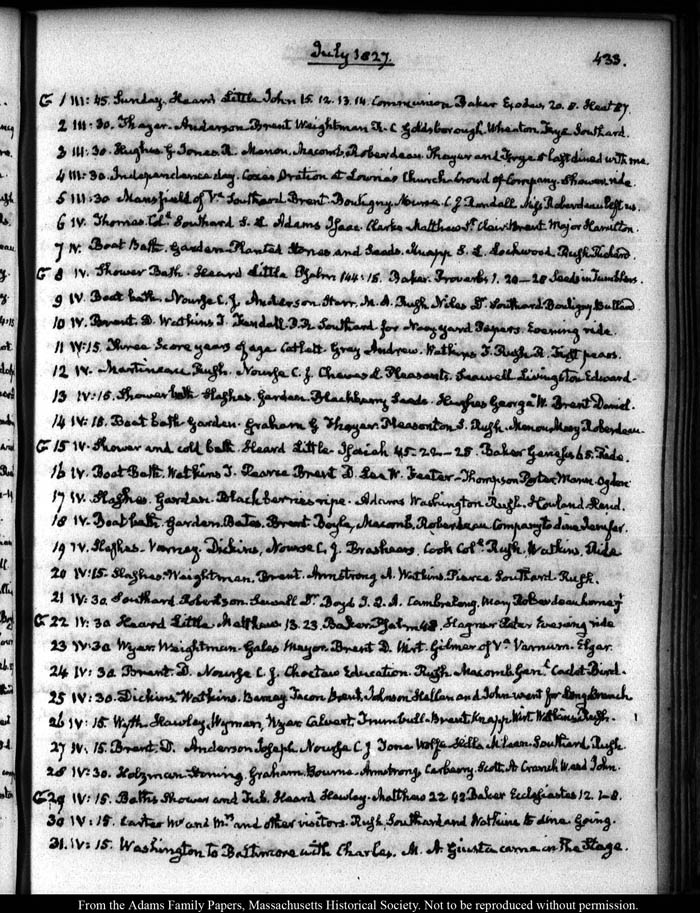 July 1827.
433.
G 1 III: 45. Sunday. Heard Little John 15. 12. 13. 14. Communion Baker Exodus 20. 8. Heat 87.
2 III: 30. Thayer. Anderson. Brent Weightman R. C Goldsborough. Wheaton. Frye. Southard.
3 III: 30. Hughes G Jones R. Menou. Macomb. Roberdeau Thayer and Frye dined with me.
4 III: 30. Independence day. Coxes Oration at Church. Crowd of Company. Shower. ride.
5 III: 30 Mansfield of Va. Southard Brent. Bouligny Nourse. C. J Randall Miss Roberdeau left us.
6 IV. Thomas Col. Southard S. L Adams Isaac Clarke Matthew St. Clair. Brent. Major Hamilton.
7 IV. Boat Bath. Garden. Planted Stones and Seeds. Knapp S. L. Lockwood. Rush Richard.
G 8 IV. Shower Bath. Heard Little Psalm 144: 15. Baker. Proverbs 1. 20–28 Seeds in Tumblers.
9 IV. Boat bath. Nourse C. J. Anderson. Starr. M. A. Rush Niles Dr. Southard. Bouligny Bullard
10 IV. Brent. D. Watkins T. Kendall. Southard for Navy yard Papers. Evening ride.
11 IV: 15. Three Score years of age Catlett. Gray Andrew. Watkins T. Rush R. First pears.
12 IV. Martineau. Rush. Nourse C. J Cheves L Pleasants. Seawell Livingston Edward.
13 IV: 15. Shower bath. Garden. Blackberry Seeds. Hughes George W. Brent Daniel.
14 IV: 15. Boat bath. Garden. Graham G Thayer. Pleasonton S. Rush. Menou. Mary Roberdeau.
G 15 IV. Shower and cold bath. Heard Little. Isaiah 45. 22–25. Baker Genesis 65. Ride.
16 IV. Boat Bath. Watkins T. Pearce Brent D. Lee W. Thompson Porter. Ogden
17 IV. Garden. Blackberries ripe. Adams Washington Rush. Howland.
18 IV. Boat bath. Garden. Bates. Brent Boyle, Macomb. Roberdeau Company to dine
19 IV. Dickins, Nourse C. J. Brashears. Cook Rush. Watkins. Ride
20 IV: 15. Weightman, Brent. Armstrong A. Watkins. Pierce Southard. Rush.
21 IV: 30. Southard. Robertson. Sewall Dr. Boyd J. Q. A. Mary Roberdeau home
G 22 IV: 30 Heard Little Matthew 13. 23. Baker. Psalm 48. Hagner Peter Evening ride
23 IV: 30 Wyer. Weightman. Gales Mayor. Brent D. Wirt. Gilmer of Va Varnum. Elgar.
24 IV: 30. Brent. D. Nourse C. J. Choctaw Education. Rush Macomb Genl. Cadet Bird.
25 IV: 30. Dickins Watkins. Brent. Johnson Hellen and John went for Long Branch
26 IV: 15. Hawley, Wyman, Wyer Calvert, Trumbull. Brent. Knapp Wirt. Watkins. Rush.
27 IV: 15. Brent. D. Anderson Joseph. Nourse C J Tone Wolfe. Southard, Rush
28 IV: 30. Holzman. Graham. Bourne. Armstrong. Scott. A Cranch W and John.
G 29 IV: 15. Baths Shower and Tub. Heard Hawley. Matthew 22. 42 Baker Ecclesiastes 12. 1–8.
30 IV: 15. Carter Mr and Mrs and other visitors. Rush, Southard and Watkins to dine. Going.
31. IV: 15. Washington to Baltimore with Charles. M. A. Giusta came in the Stage.
From the Adams Family Papers, Massachusetts Historical Society. Not to be reproduced without permission.